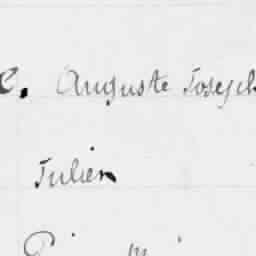 C. Auguste Joseph
Julien